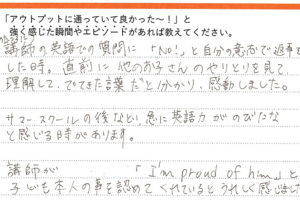 「アウトプットに通っていて良かった〜！」と
強く感じた瞬間やエピソードがあれば教えてください。
講師の英語での質問に「No!」と自分の意志で返事を
した時。直前に他のお子さんのやりとりを見て、
理解して、でてきた言葉だと分かり、感動しました。
サマースクールの後など、急に英語力がのびたな
と感じる時があります。
講師が 「I'm proud of him」と
子ども本人の事を認めてくれているとうれしく感じました